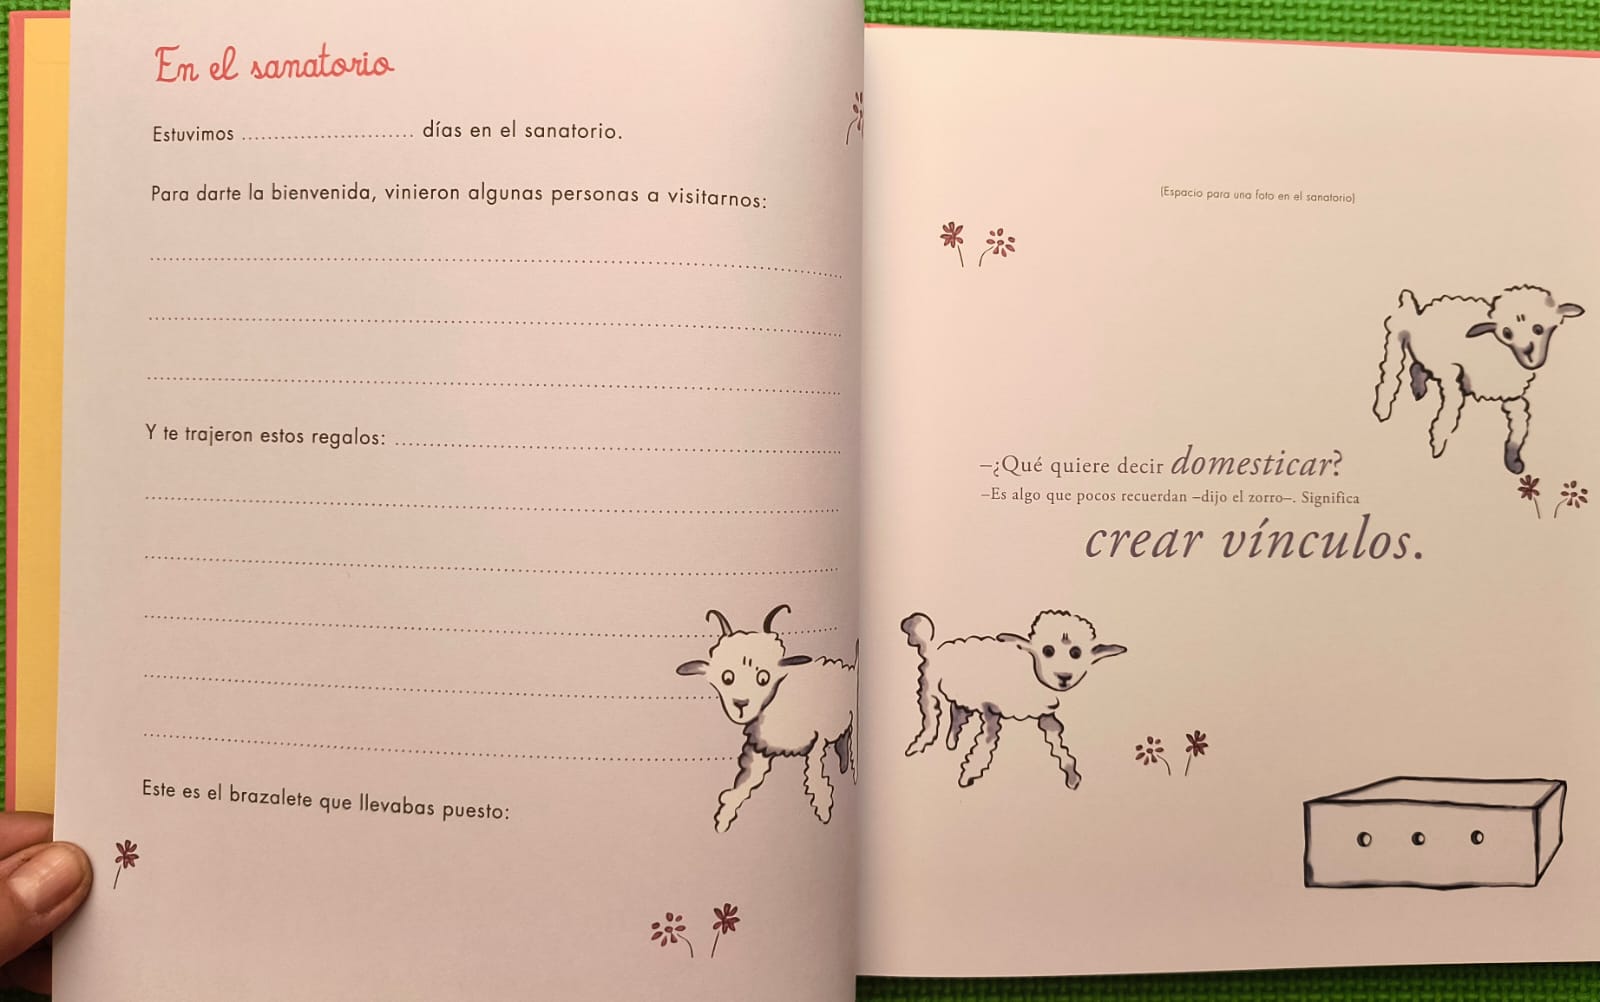 En el sanatorio
Estuvimos ........................... días en el sanatorio.
Para darte la bienvenida, vinieron algunas personas a visitarnos:
Y te trajeron estos regalos:
Este es el brazalete que llevabas puesto:
(Espacio para una foto en el sanatorio)
–¿Qué quiere decir domesticar?
–Es algo que pocos recuerdan –dijo el zorro–. Significa
crear vínculos.